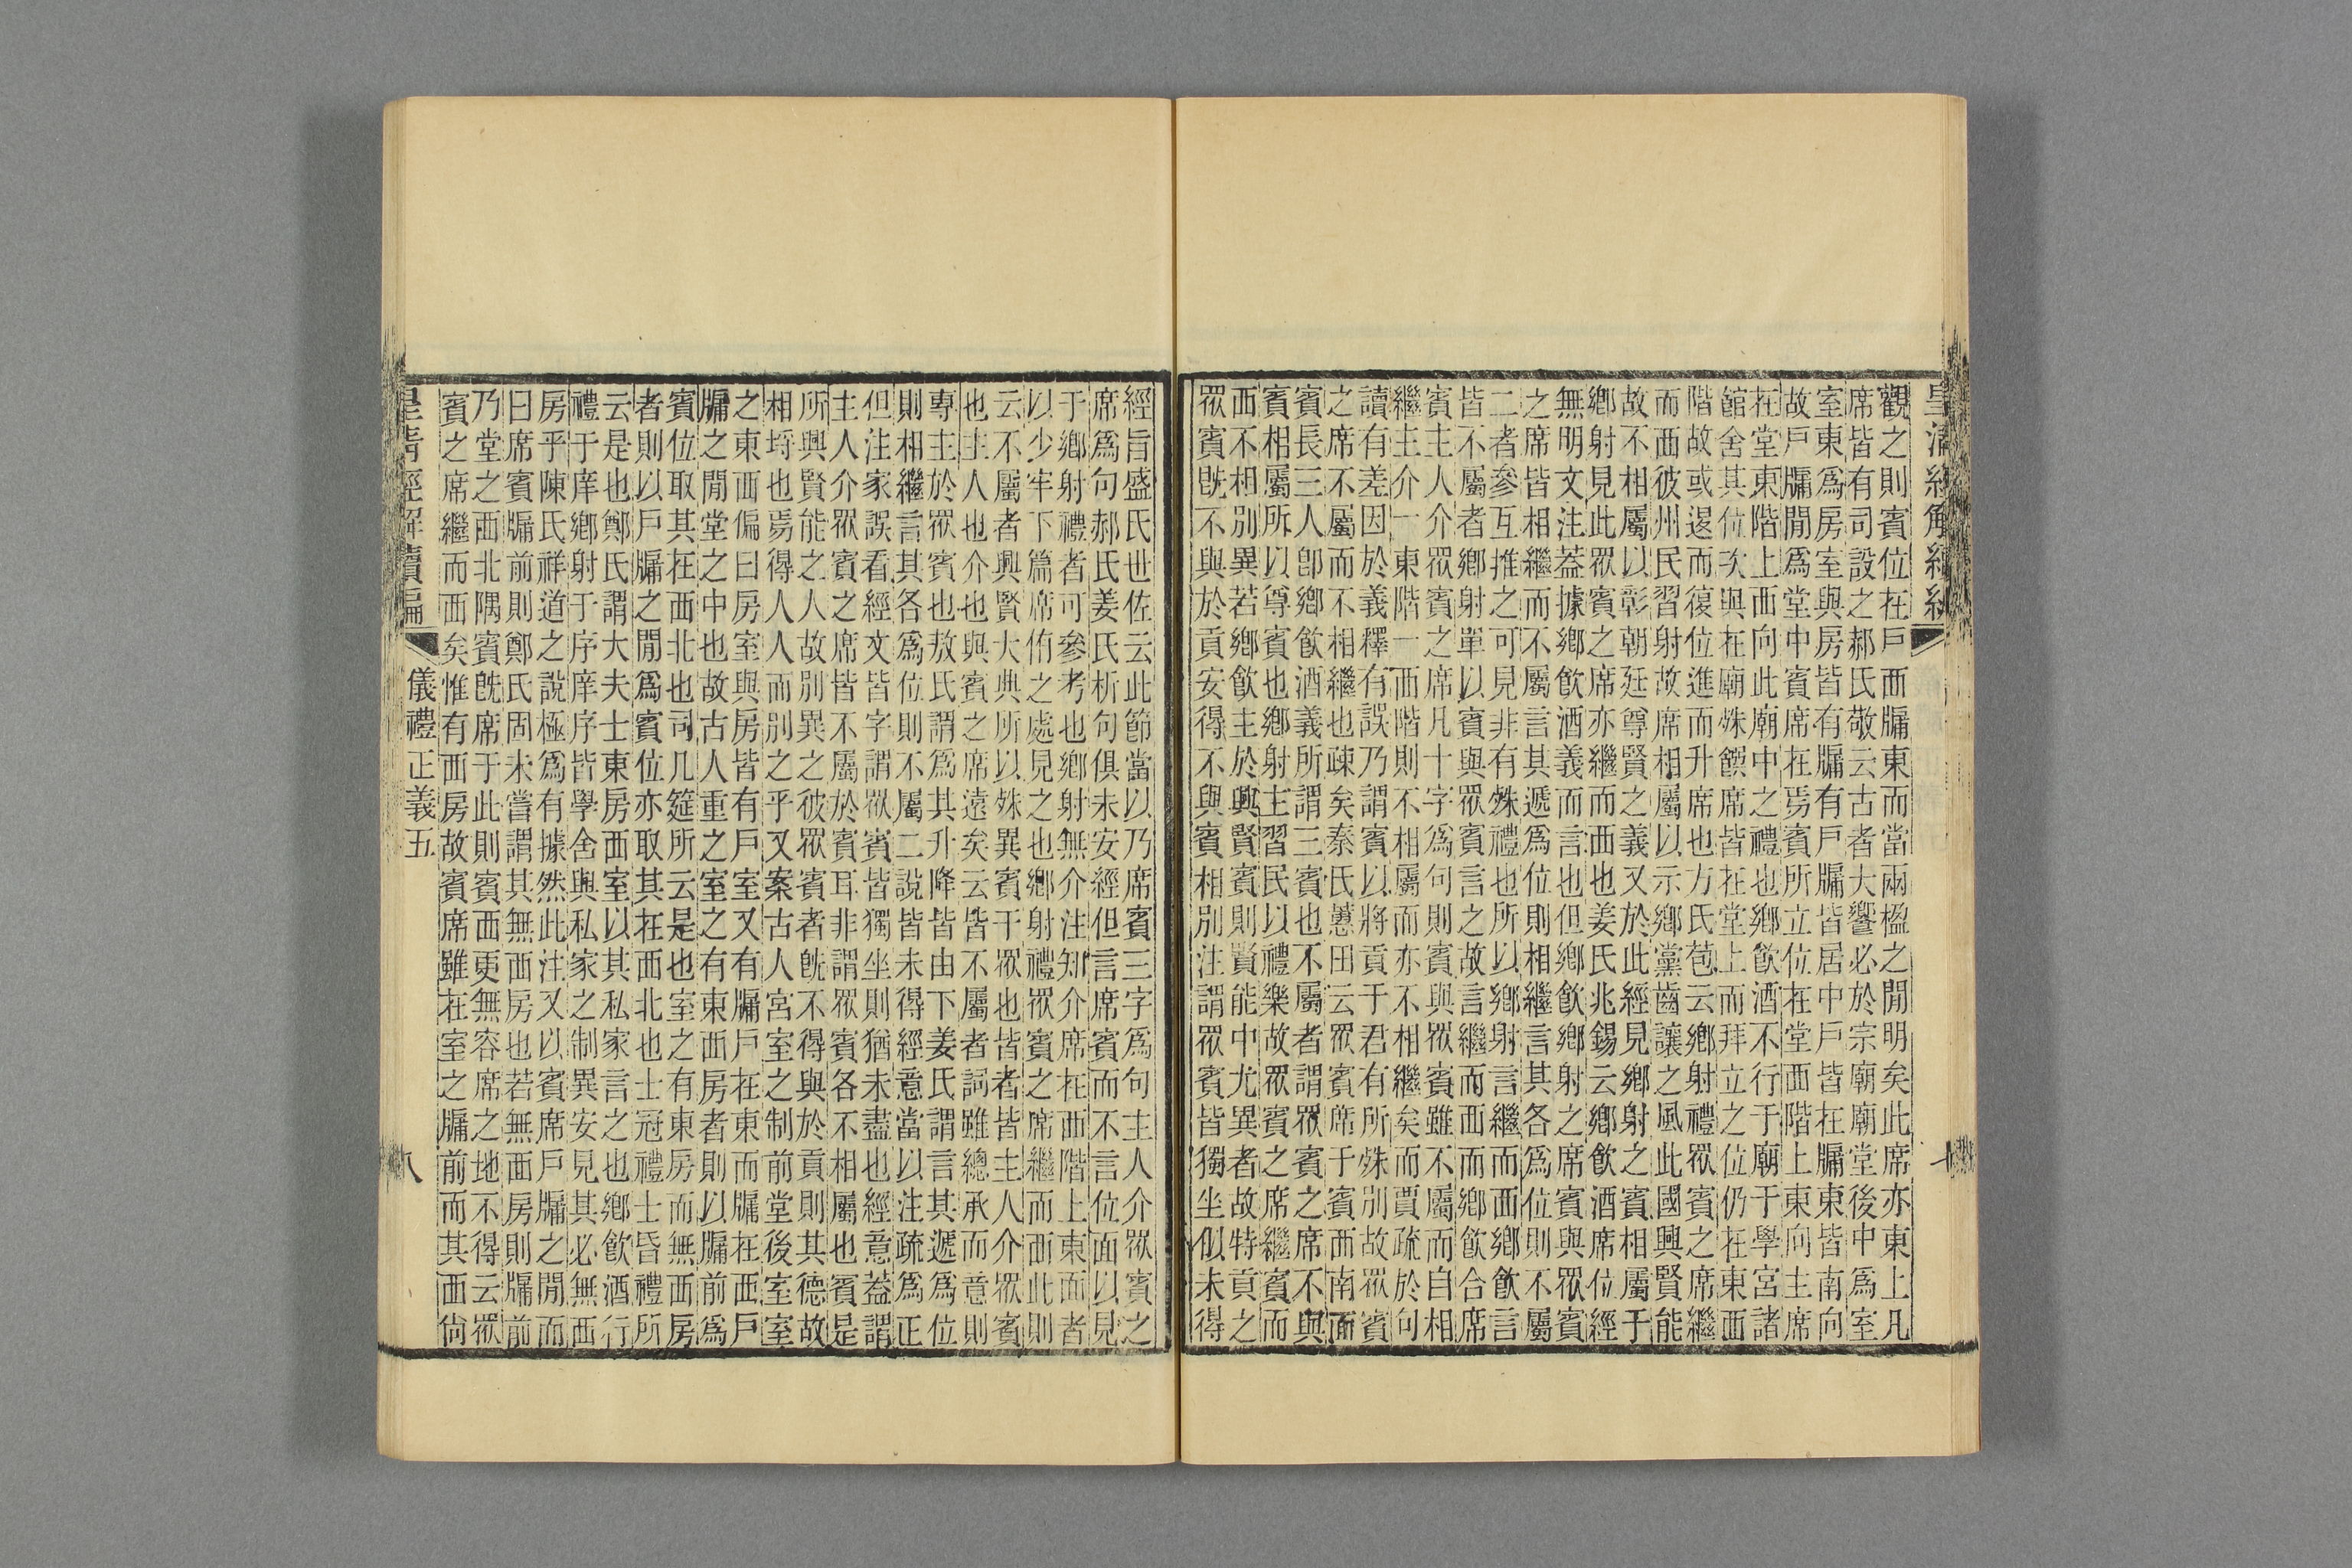 觀之則賓位在戶西牖東而當兩楹之閒明矣此席亦東上凡
席皆有司設之郝氏敬云古者大饗必於宗廟廟堂後中爲室
室東爲房室與房皆有牖有戶牖皆居中戶皆在牖東皆南向
故戶牖閒爲堂中賓席在焉賓所立位在堂西階上東向主席
在堂東階上西向此廟中之禮也鄉飲酒不行于廟于學宮諸
館舍其位次與在廟殊饌席皆在堂上而拜立之位仍在東西
階故或退而復位進而升席也方氏苞云鄉射禮眾賓之席繼
而西彼州民習射故席相屬以示鄉黨齒讓之風此國興賢能
故不相屬以彰朝廷尊賢之義又於此經見鄉射之賓相屬于
鄉射見此眾賓之席亦繼而西也姜氏兆錫云鄉飲酒席位經
無明文注蓋據鄉飲酒義而言也但鄉飲鄉射之席賓與眾賓
之席皆相繼而不屬言其遞爲位則相繼言其各爲位則不屬
二者參互推之可見非有殊禮也所以鄉射言繼而西鄉飲言
皆不屬者鄉射單以賓與眾賓言之故言繼而西而鄉飲合席
賓主人介眾賓之席凡十字爲句則賓與眾賓雖不屬而自相
繼主介一東階一西階則不相屬而亦不相繼矣而賈疏於句
讀有差因於義釋有誤乃謂賓以將貢于君有所殊別故眾賓
之席不屬而不相繼也疎矣秦氏蕙田云眾賓席于賓西南面
賓長三人卽鄉飲酒義所謂三賓也不屬者謂眾賓之席不與
賓相屬所以尊賓也鄉射主習民以禮樂故眾賓之席繼賓而
西不相別異若鄉飲主於興賢賓則賢能中尤異者故特貢之
眾賓旣不與於貢安得不與賓相別注謂眾賓皆獨坐似未得
經旨盛氏世佐云此節當以乃席賓三字爲句主人介眾賓之
席爲句郝氏姜氏析句俱未安經但言席賓而不言位面以見
于鄉射禮者可參考也鄉射無介注知介席在西階上東面者
以少牢下篇席侑之處見之也鄉射禮眾賓之席繼而西此則
云不屬者興賢大典所以殊異賓于眾也皆者皆主人介眾賓
也主人也介也與賓之席遠矣云皆不屬者詞雖總承而意則
專主於眾賓也敖氏謂爲其升降皆由下姜氏謂言其遞爲位
則相繼言其各爲位則不屬二說皆未得經意當以注疏爲正
但注家誤看經文皆字謂眾賓皆獨坐則猶未盡也經意蓋謂
主人介眾賓之席皆不屬於賓耳非謂眾賓各不相屬也賓是
所興賢能之人故別異之彼眾賓者旣不得與於貢則其德故
相埒也焉得人人而別之乎又案古人宮室之制前堂後室室
之東西偏曰房室與房皆有戶室又有牖戶在東而牖在西戶
牖之閒堂之中也故古人重之室之有東西房者則以牖前爲
賓位取其在西北也司几筵所云是也室之有東房而無西房
者則以戶牖之閒爲賓位亦取其在西北也士冠禮士昏禮所
云是也鄭氏謂大夫士東房西室以其私家言之也鄉飲酒行
禮于庠鄉射于序庠序皆學舍與私家之制異安見其必無西
房乎陳氏祥道之說極爲有據然此注又以賓席戶牖之閒而
曰席賓牖前則鄭氏固未嘗謂其無西房也若無西房則牖前
乃堂之西北隅賓旣席于此則賓西更無容席之地不得云眾
賓之席繼而西矣惟有西房故賓席雖在室之牖前而其西尚
皇清經解續編 儀禮正義五 八